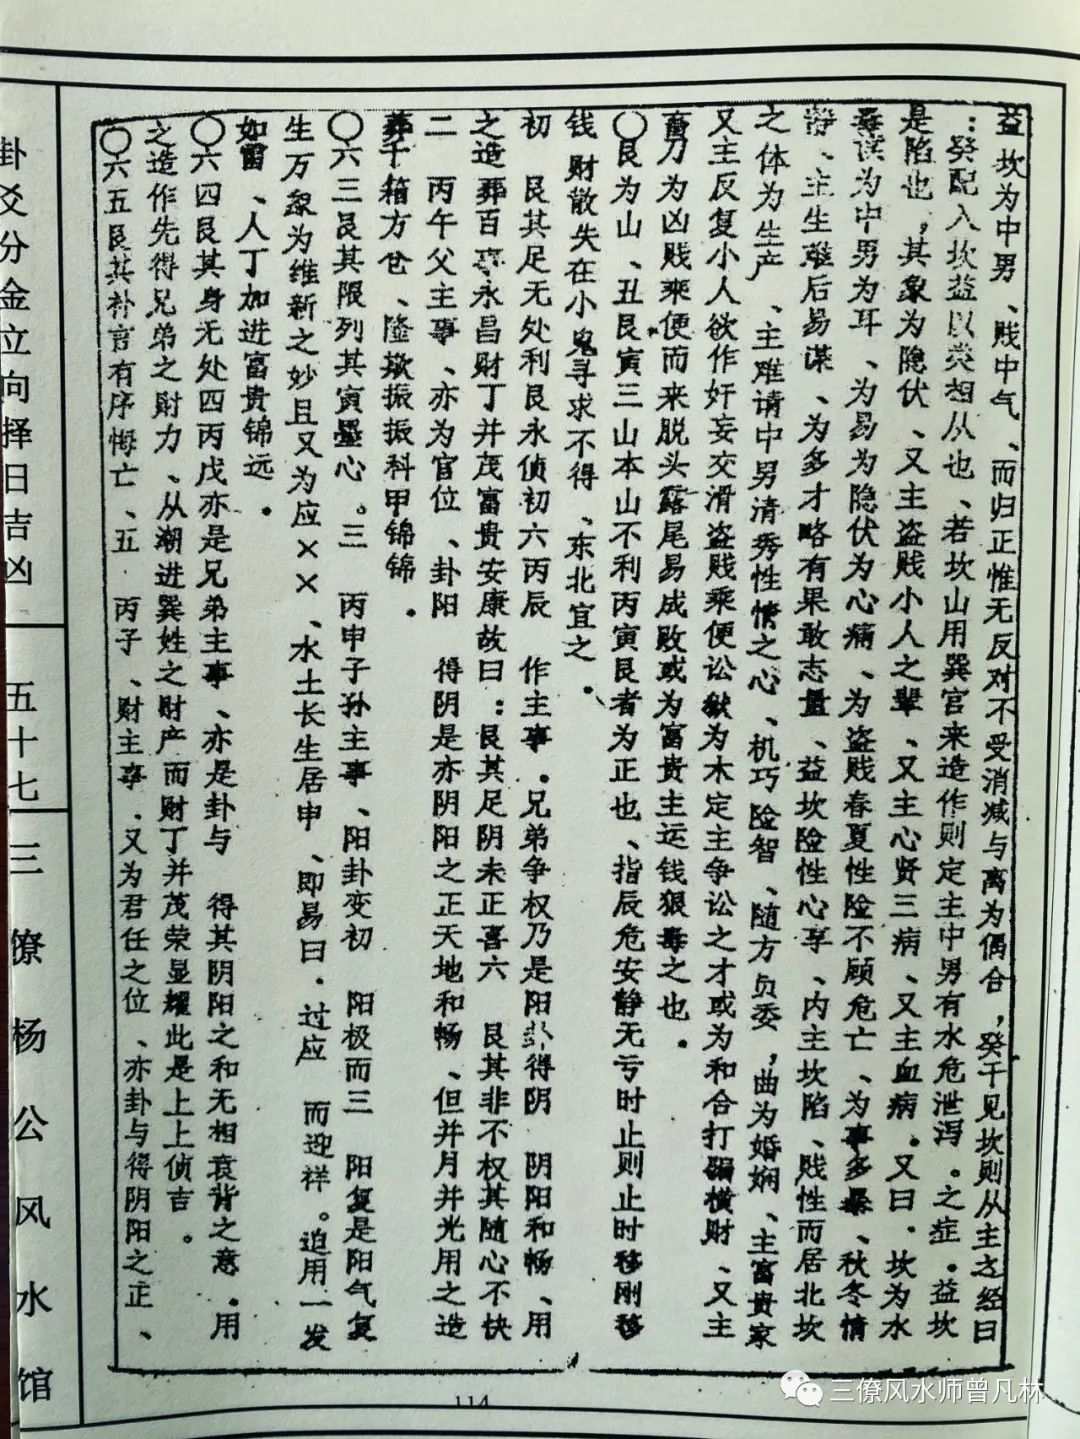 益坎为中男、贱中气、而归正惟无反对不受消减与离为偶合，癸干见坎则从主之经曰
：癸配入坎益以类相从也、若坎山用巽宫来造作则定主中男有水危泄泻。之症。益坎
是陷也，其象为隐伏、又主盗贱小人之辈、又主心贤三病、又主血病。又曰．坎为水
毒读为中男为耳、为易为隐伏为心痛、为盗贱春夏性险不顾危亡、为事多暴、秋冬情
静、主生难后易谋、为多才略有果敢志量、益坎险性心享、内主坎陷、贱性而居北坎
之体为生产、主难请中男清秀性情之心、机巧险智、随方负委，曲为婚娴、主富贵家
又主反复小人欲作奸妄交滑盗贱乘便讼狱为木定主争讼之才或为和合打骗横财、又主
刀为凶贱乘便而来脱头露尾易成败或为富贵主运钱狠毒之也。
〇艮为山、丑艮寅三山本山不利丙寅艮者为正也、指辰危安静无亏时止则止时移刚移
钱财散失在小鬼寻求不得、东北宜之．
初　艮其足无处利艮永侦初六丙辰　作主事．兄弟争权乃是阳卦得阴　阴阳和畅、用
之造葬百事永昌财丁并茂富贵安康故曰：艮其足阴未正喜六　艮其非不权其随心不快
二　丙午父主事、亦为官位、卦阳　得阴是亦阴阳之正天地和畅、但并月并光用之造
葬千箱方仓、隆歘振振科甲锦锦．
〇六三艮其限列其寅墨心。三　丙申子孙主事、阳卦变初　阳极而三　阳复是阳气复
生万象为维新之妙且又为应××、水土长生居申、即易曰．过应　而迎祥。迫用一发
如雷、人丁加进富贵锦远．
〇六四艮其身无处四丙戊亦是兄弟主事、亦是卦与　得其阴阳之和无相衰背之意．用
之造作先得兄弟之财力、从潮进巽姓之财产而财丁并茂荣显耀此是上上侦吉。
〇六五艮其补言有序悔亡、五　丙子、财主事．又为君任之位、亦卦与得阴阳之正、
卦爻分金立向择日吉凶
五十七
三僚杨公风水馆
114
三僚风水师曾凡林